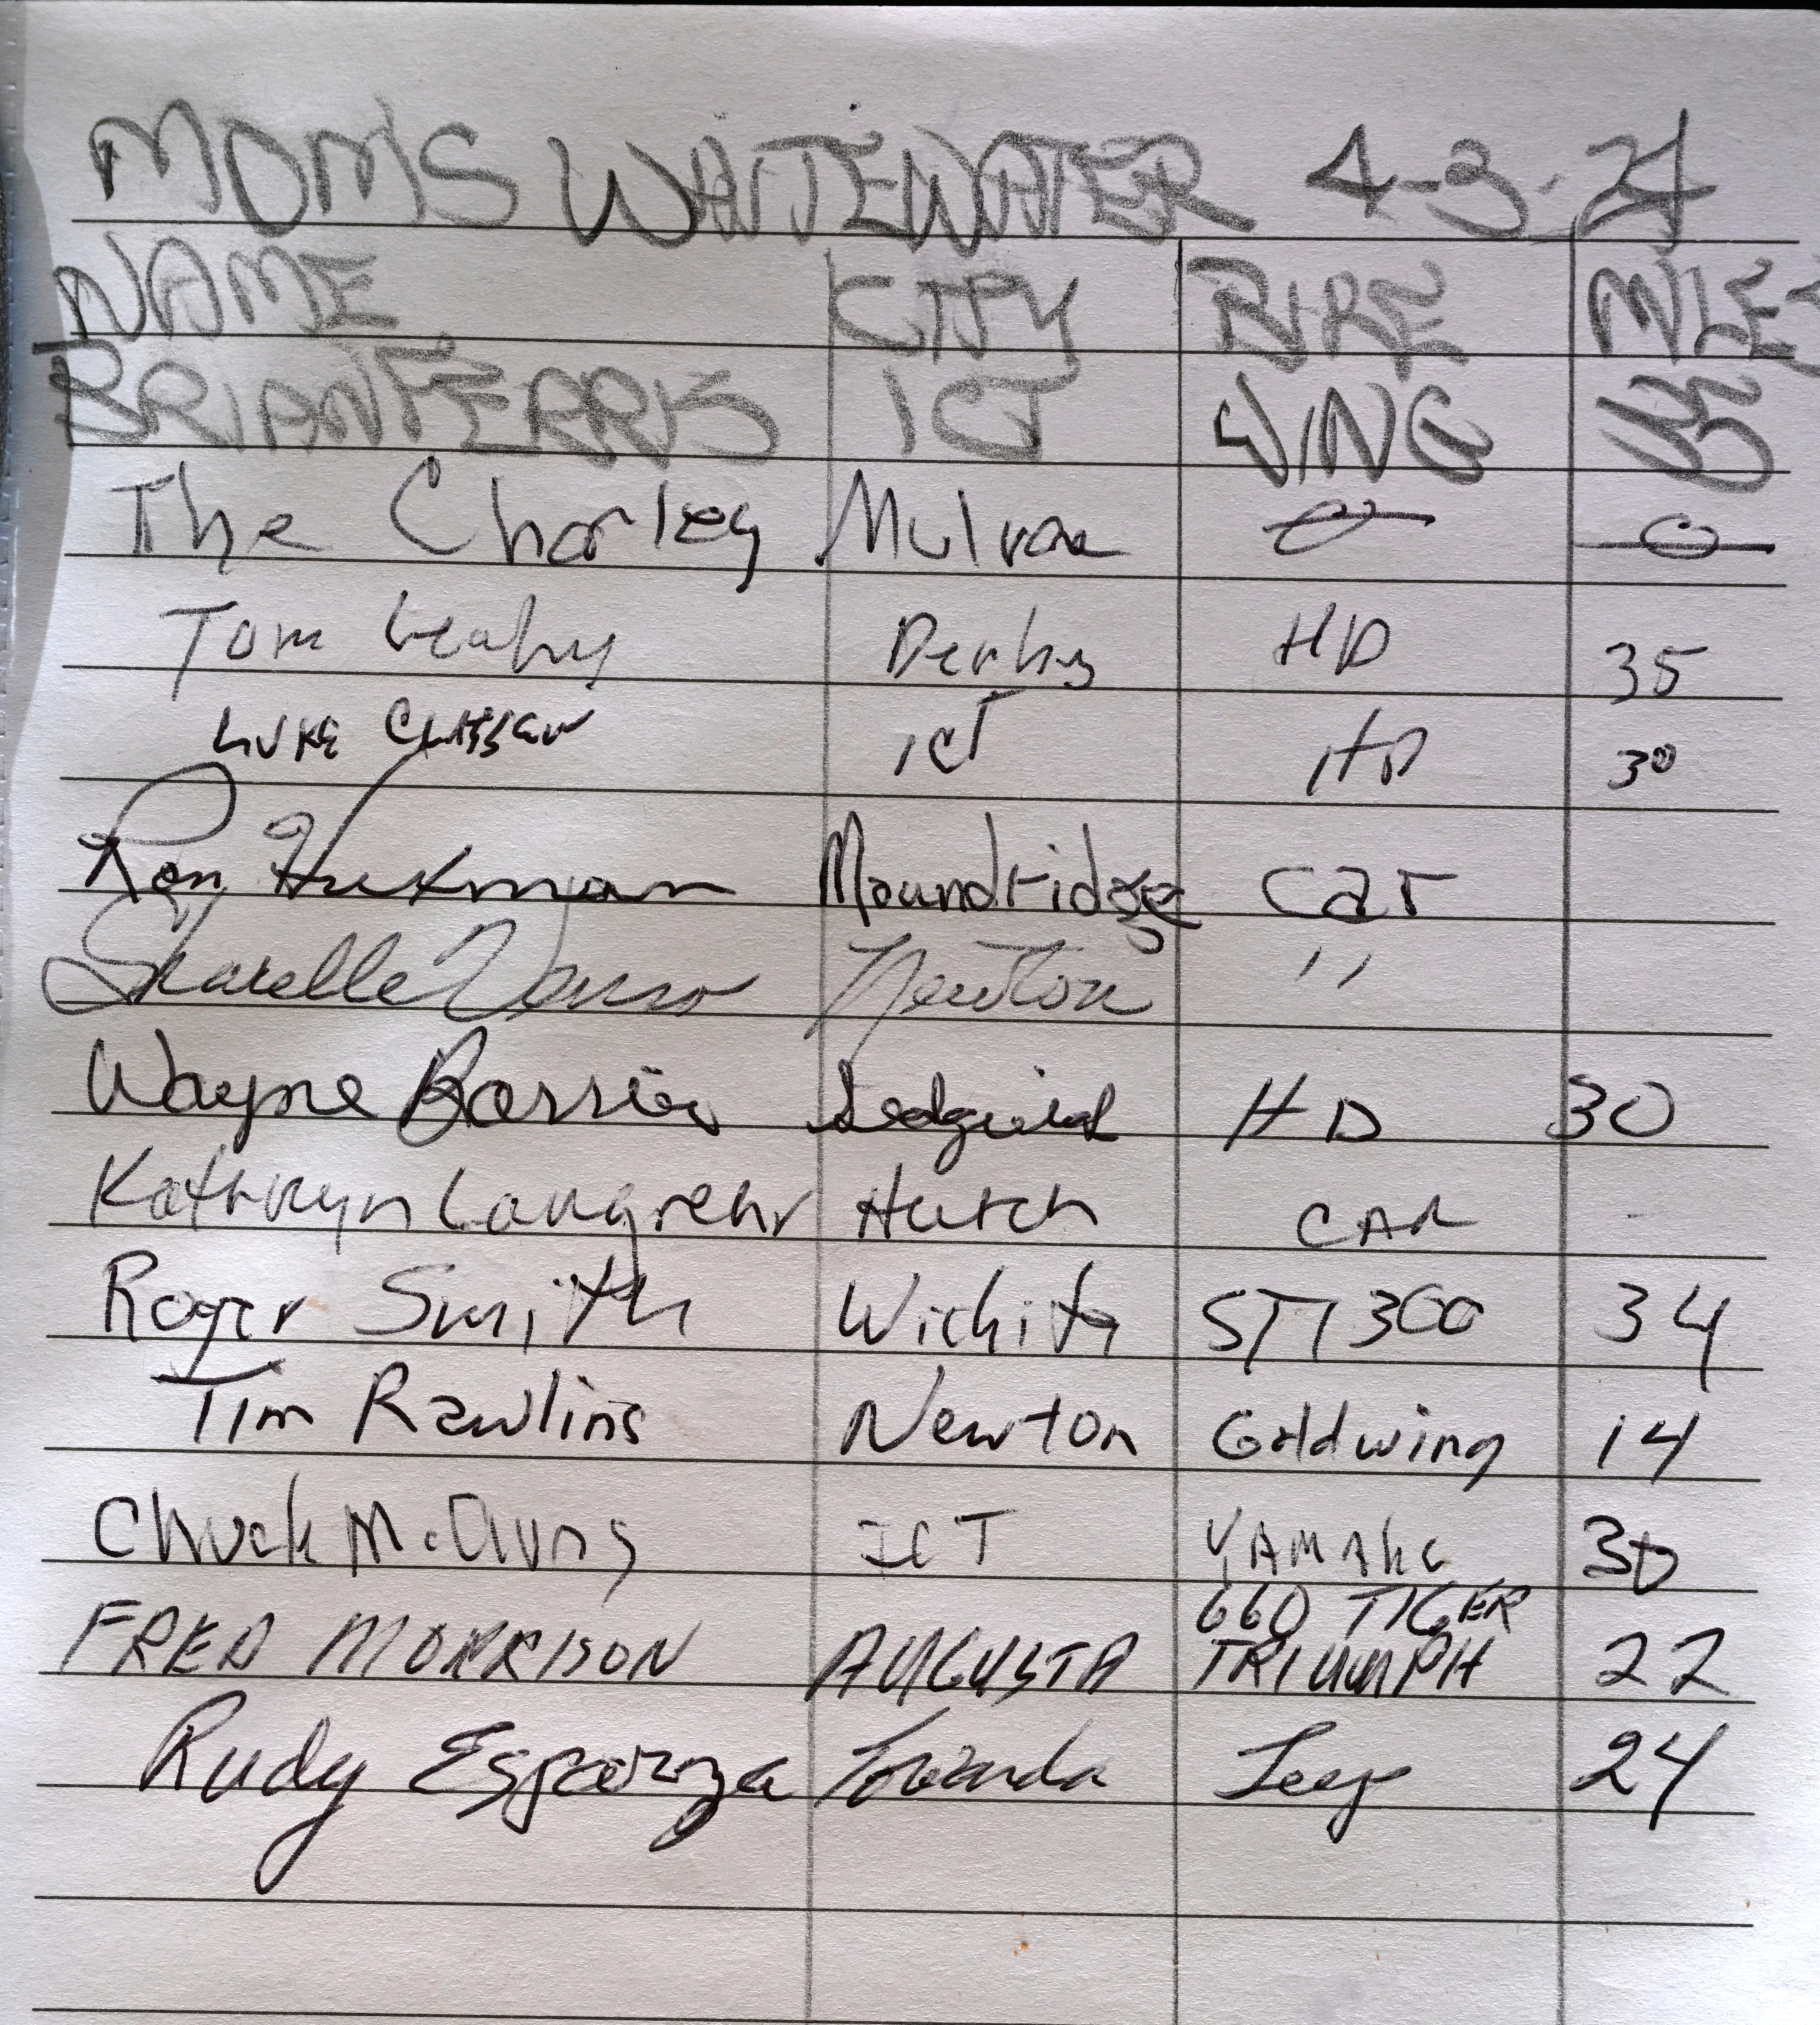 MOM'S WHITEWATER 4-3-24
NAME CITY BIKE MILES
BRIAN FERRIS ICT WING
The Charley Mulvane 0 0
Tom Leahy Derby HD 35
LUKE CLASSEN ICT HD 30
Ron Moundridge car
Newton "
Wayne Sedgwick HD 30
Kathryn Langrehr Hutch CAR -
Roger Smith Wichita ST1300 34
Tim Rawlins Newton Goldwing 14
Chuck ICT YAMAha 30
660 TIGER
FRED MORRISON AUGUSTA TRIUMPH 22
Rudy Esparza Towanda Jeep 24